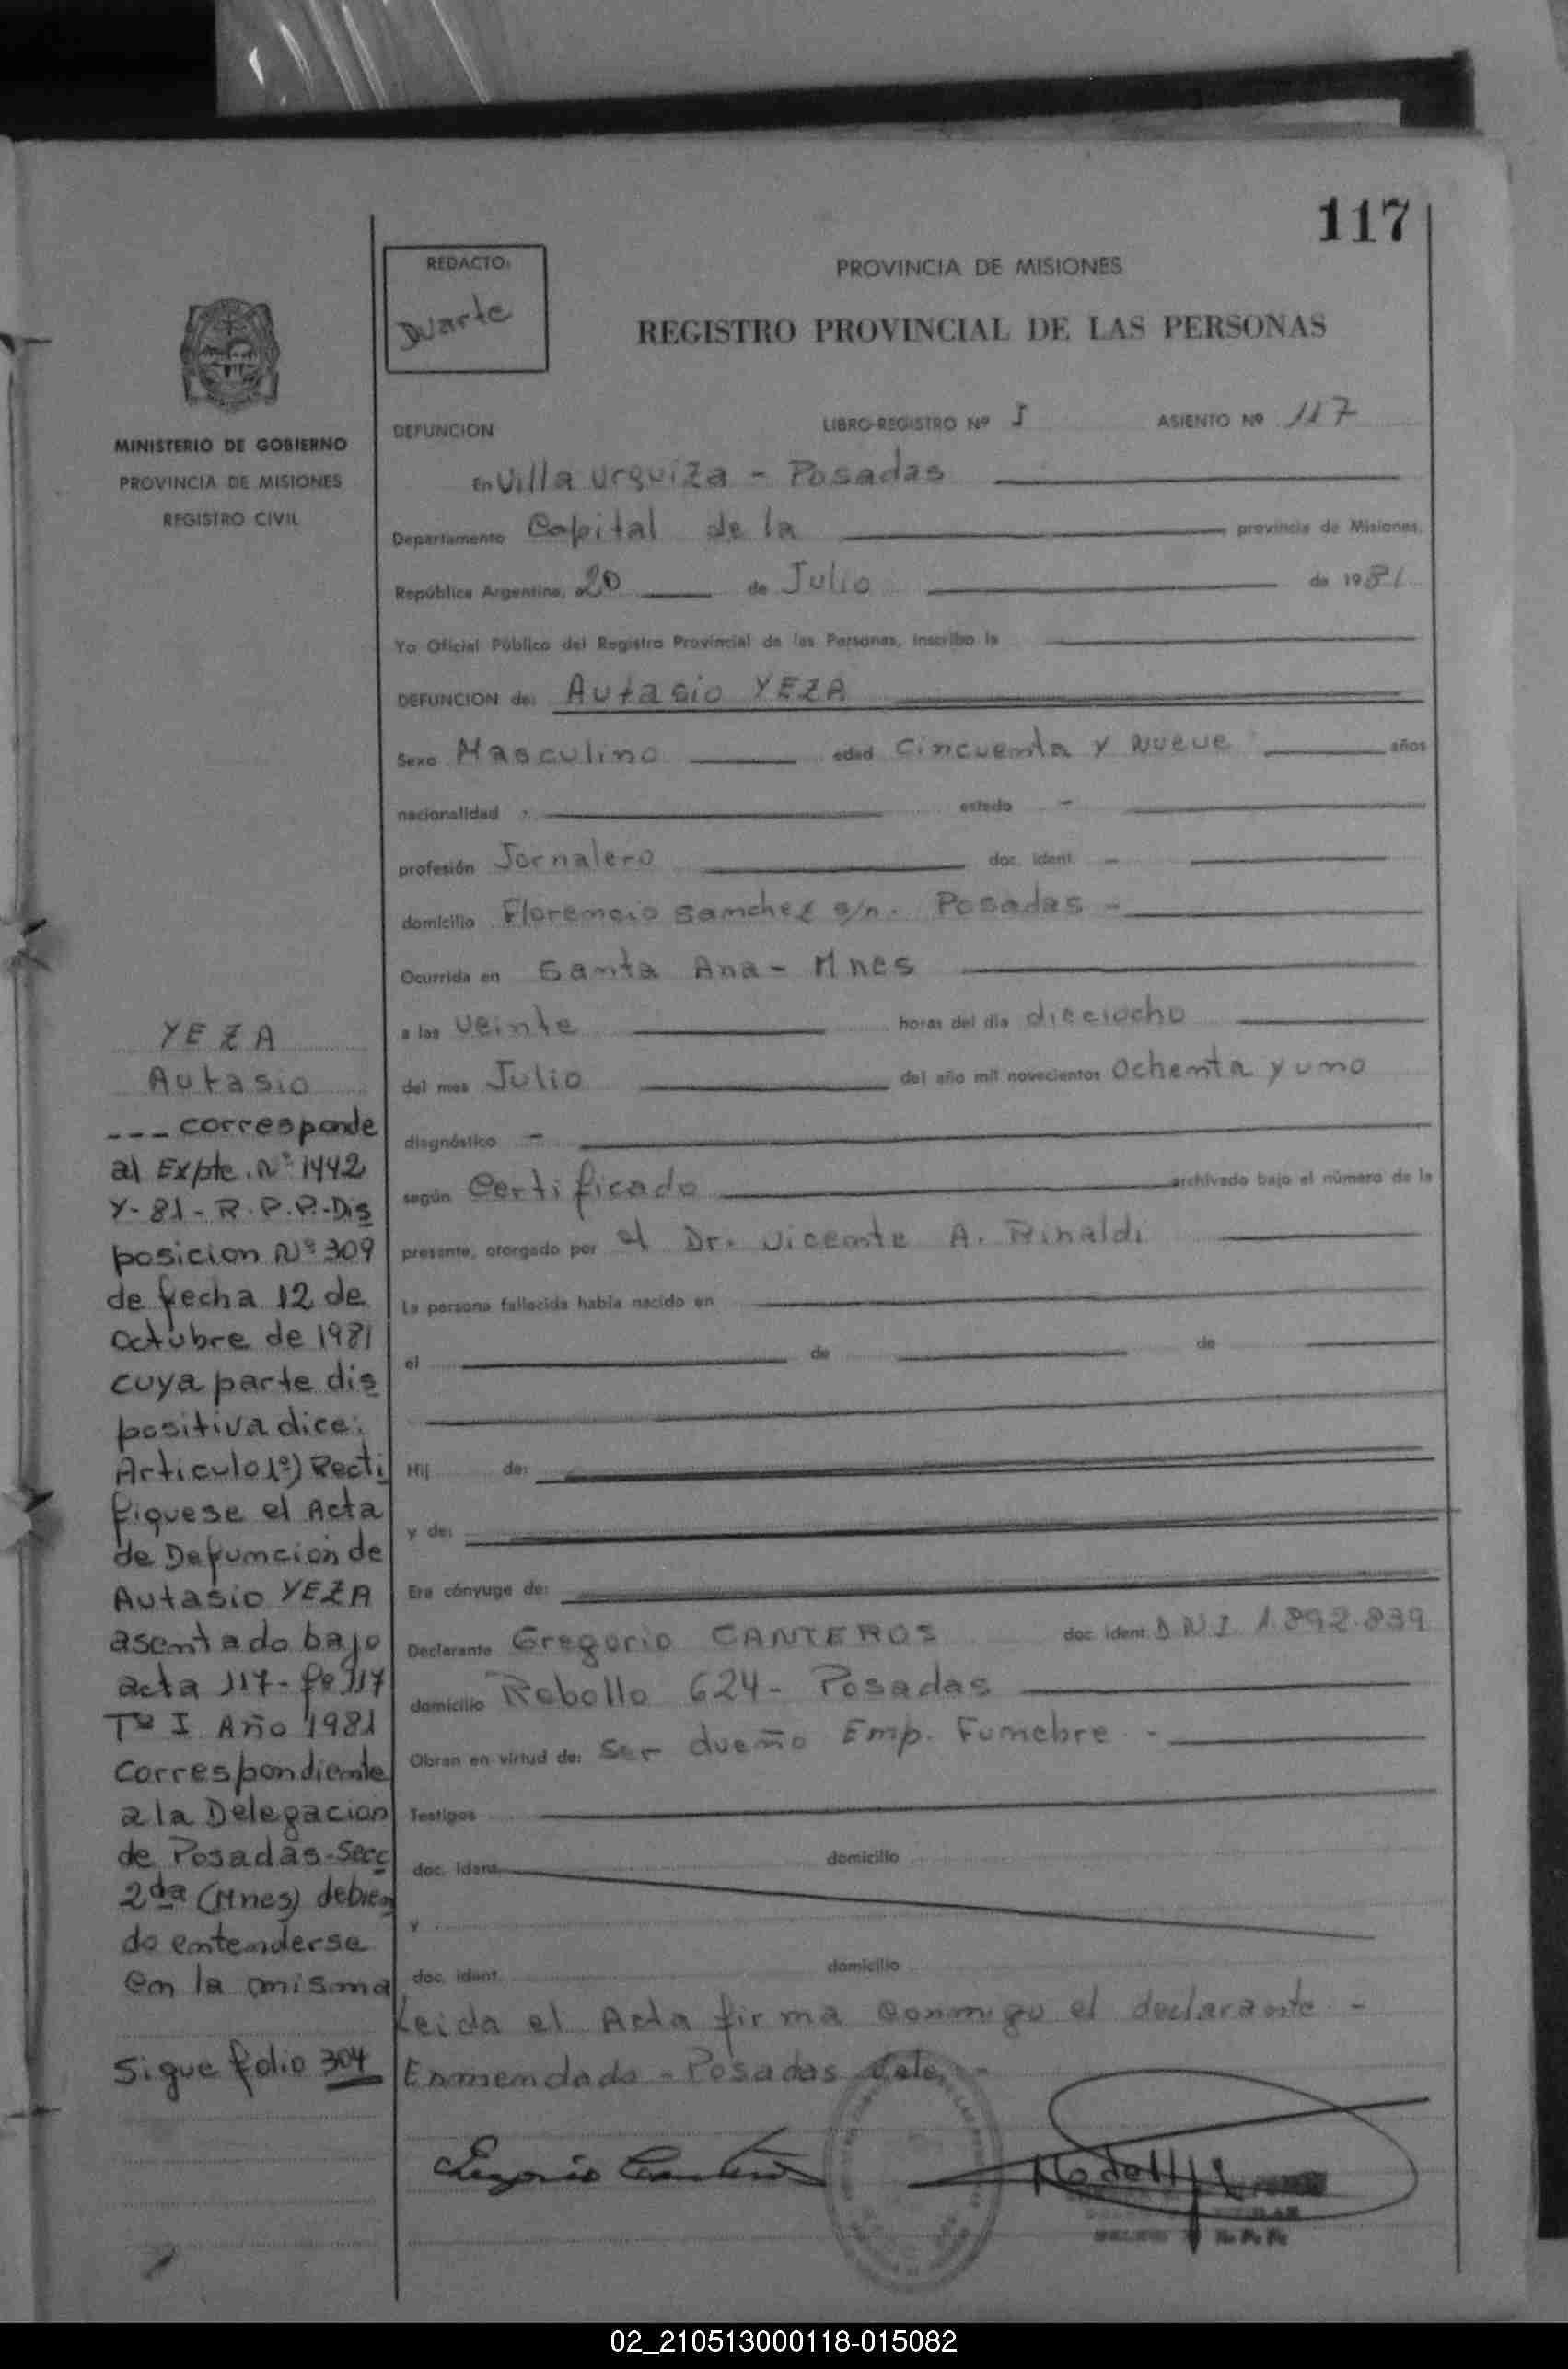 117
REDACTO:
Duarte
PROVINCIA DE MISIONES
REGISTRO PROVINCIAL DE LAS PERSONAS
MINISTERIO DE GOBIERNO
PROVINCIA DE MISIONES
REGISTRO CIVIL
DEFUNCION LIBRO-REGISTRO Nº I ASIENTO Nº 117
En Villa Urquiza - Posadas
Departamento Capital de la provincia de Misiones,
República Argentina, a 20 de Julio de 1981
Yo Oficial Público del Registro Provincial de las Personas, inscribo la
DEFUNCION de: Autasio YEZA
Sexo Masculino edad Cincuenta y Nueve años
nacionalidad - estado -
profesión Jornalero doc. ident. -
domicilio Florencio Sanchez s/n. Posadas -
Ocurrida en Santa Ana - Mnes
a las Veinte horas del día dieciocho
del mes Julio del año mil novecientos Ochenta y uno
diagnóstico -
según Certificado archivado bajo el número de la
presente, otorgado por el Dr. Vicente A. Rinaldi
La persona fallecida había nacido en
el de de
Hij de:
y de:
Era cónyuge de:
Declarante Gregorio CANTEROS doc. ident. D N I 1.892.839
domicilio Rebollo 624 - Posadas
Obran en virtud de: Ser dueño Emp. Funebre -
Testigos
doc. ident. domicilio
y
doc. ident. domicilio
Leida el Acta firma conmigo el declarante -
Enmendado - Posadas Vale. -
YEZA
Autasio
--- corresponde
al Expte. Nº 1442
Y-81-R.P.P.-Dis
posicion Nº 309
de fecha 12 de
octubre de 1981
cuya parte dis
positiva dice:
Articulo 1º) Recti
fiquese el Acta
de Defuncion de
Autasio YEZA
asentado bajo
acta 117 - fº 117
Tº I Año 1981
correspondiente
a la Delegacion
de Posadas - Secc
2da (Mnes) debien
do entenderse
en la misma
Sigue folio 304
R. P. P.
02_210513000118-015082